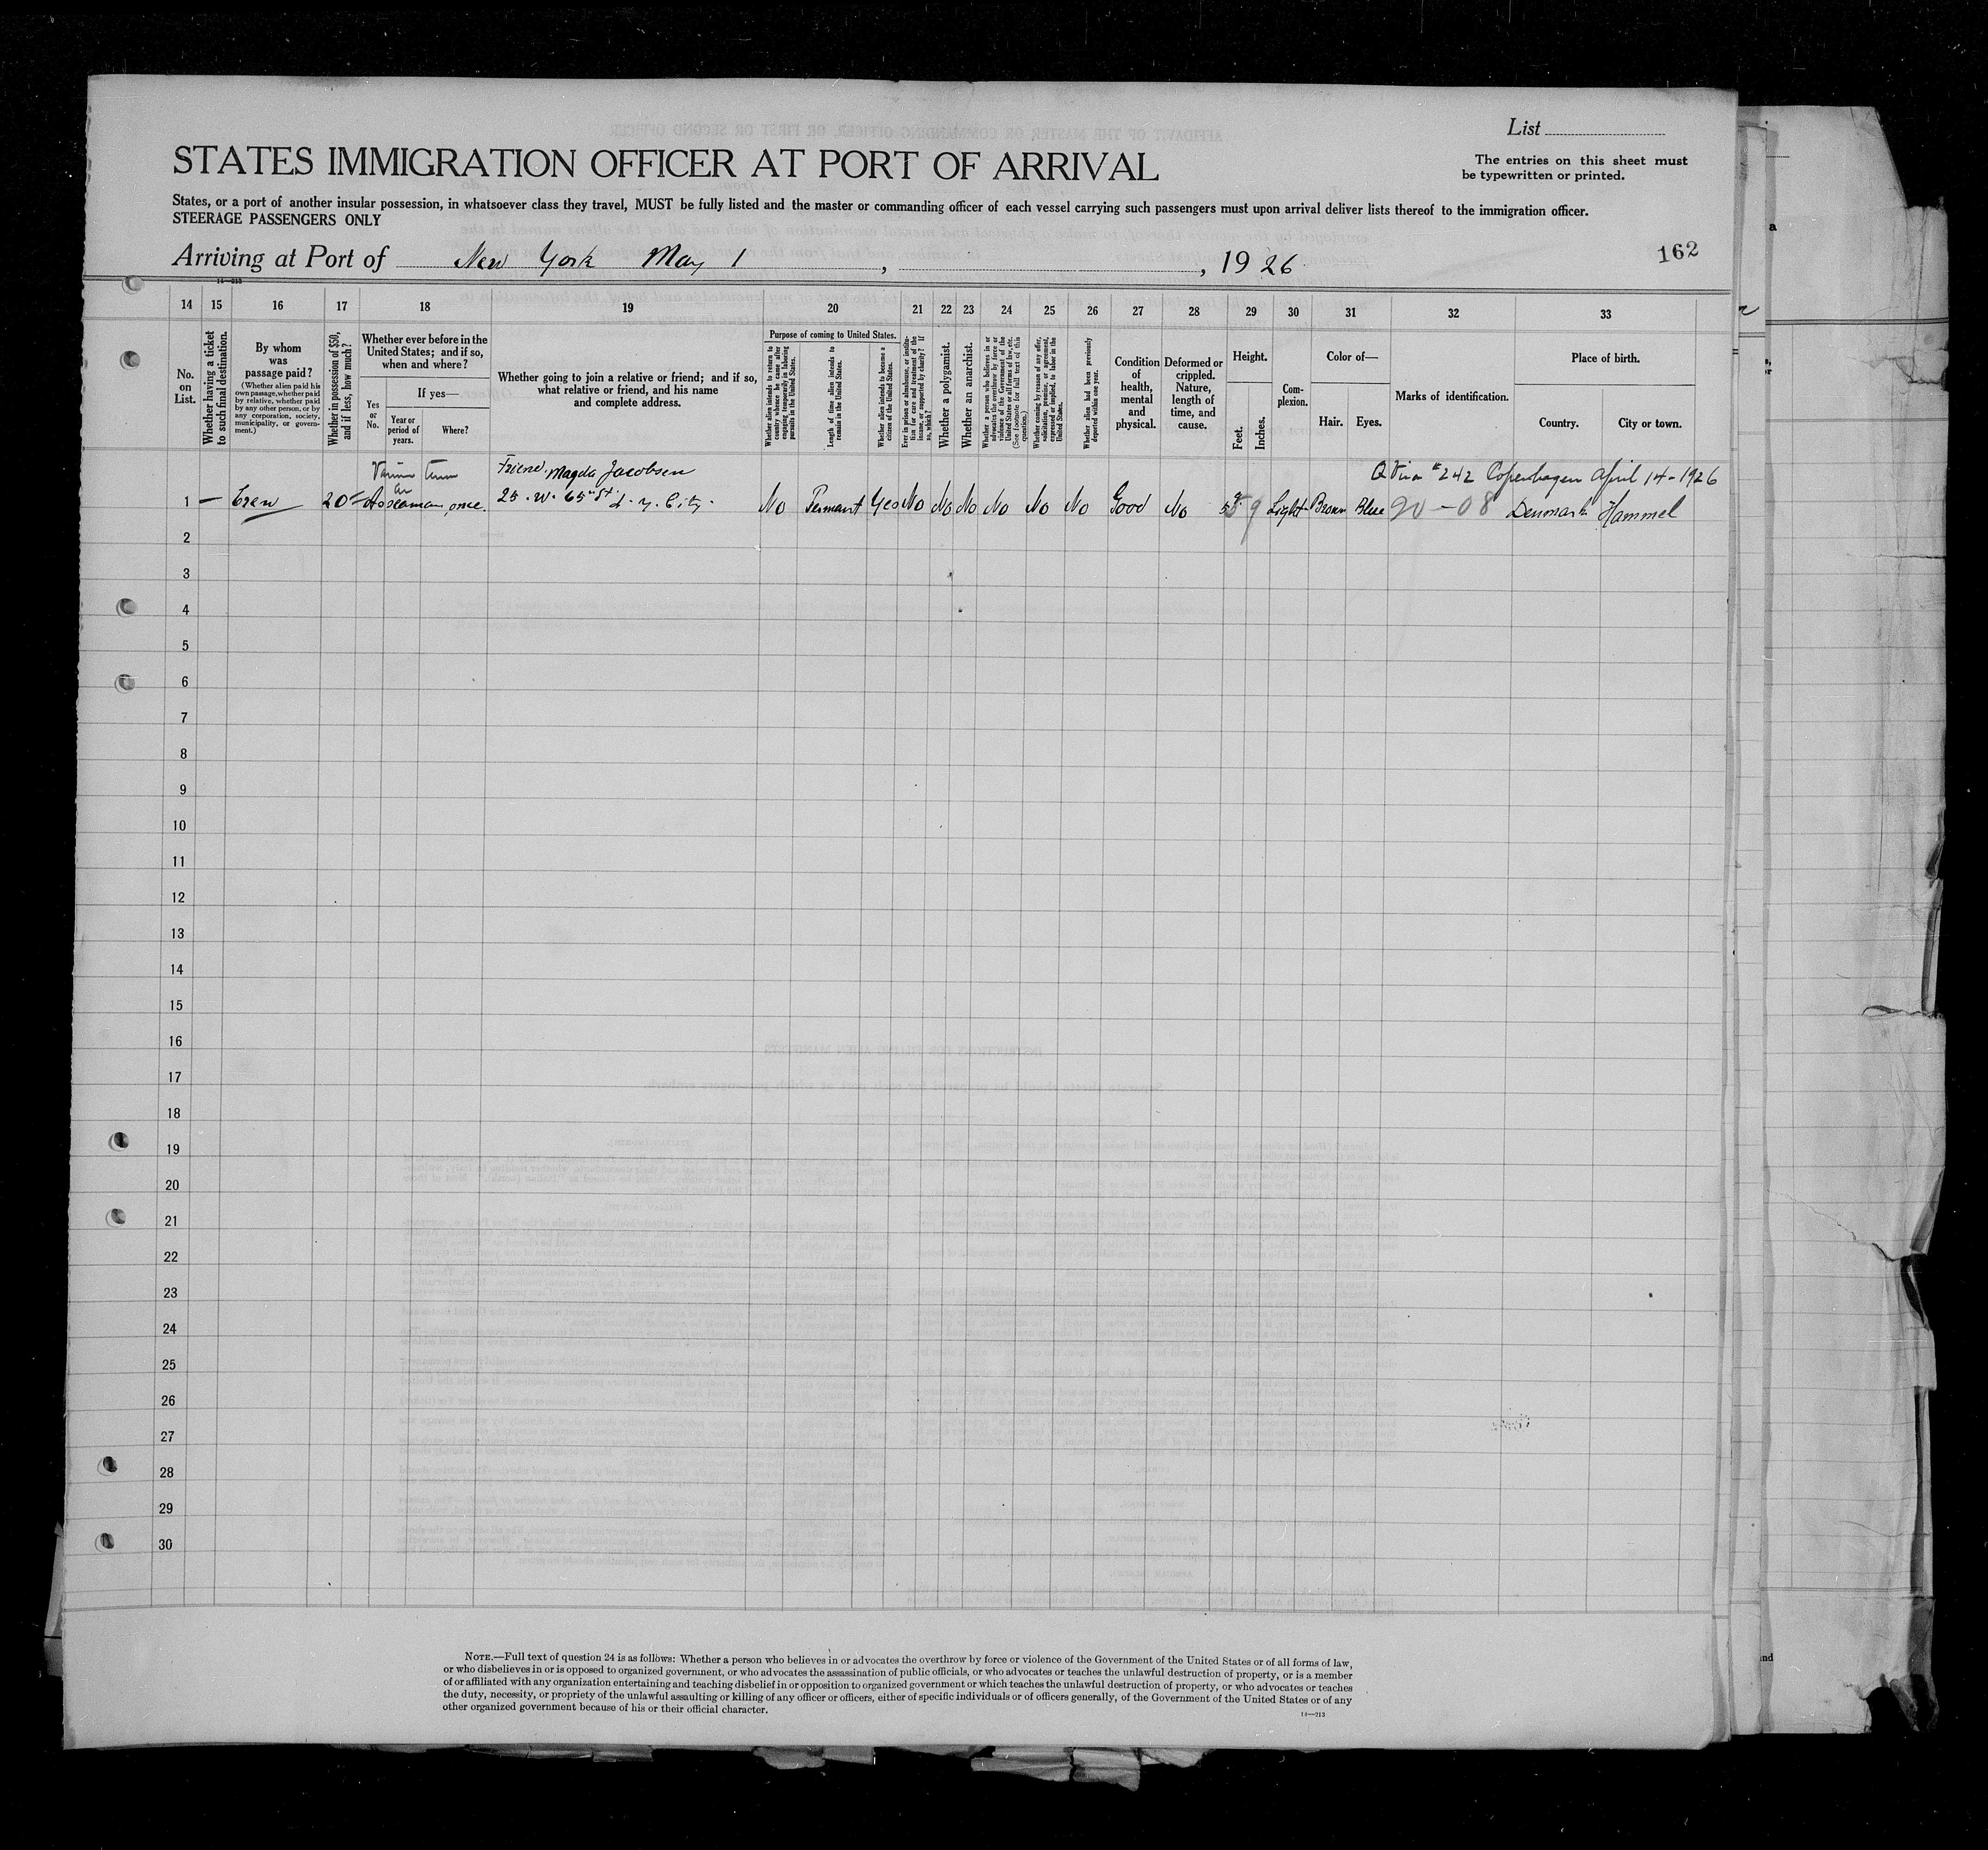 List
STATES IMMIGRATION OFFICER AT PORT OF ARRIVAL
The entries on this sheet must
be typewritten or printed.
States, or a port of another insular possession, in whatsoever class they travel, MUST be fully listed and the master or commanding officer of each vessel carrying such passengers must upon arrival deliver lists thereof to the immigration officer.
STEERAGE PASSENGERS ONLY
Arriving at Port of New York May 1, , 19 26
162
14—213
14 15 16 17 18 19 20 21 22 23 24 25 26 27 28 29 30 31 32 33
No. on List.
Whether having a ticket to such final destination.
By whom was passage paid?
(Whether alien paid his own passage, whether paid by relative, whether paid by any other person, or by any corporation, society, municipality, or government.)
Whether in possession of $50, and if less, how much?
Whether ever before in the United States; and if so, when and where?
Yes or No.
If yes—
Year or period of years.
Where?
Whether going to join a relative or friend; and if so, what relative or friend, and his name and complete address.
Purpose of coming to United States.
Whether alien intends to return to country whence he came after engaging temporarily in laboring pursuits in the United States.
Length of time alien intends to remain in the United States.
Whether alien intends to become a citizen of the United States.
Ever in prison or almshouse, or institution for care and treatment of the insane, or supported by charity? If so, which?
Whether a polygamist.
Whether an anarchist.
Whether a person who believes in or advocates the overthrow by force or violence of the Government of the United States or all forms of law, etc. (See footnote for full text of this question.)
Whether coming by reason of any offer, solicitation, promise, or agreement, expressed or implied, to labor in the United States.
Whether alien had been previously deported within one year.
Condition of health, mental and physical.
Deformed or crippled. Nature, length of time, and cause.
Height.
Feet.
Inches.
Complexion.
Color of—
Hair.
Eyes.
Marks of identification.
Place of birth.
Country.
City or town.
Friend. Magda Jacobsen
Q Visa #242 Copenhagen April 14-1926
25. W. 65th St
1 — Crew 20 As seaman, once. No Permant Yes No No No No No No Good No 5 9 Light Brown Blue 20-08 Denmark Hammel
2
3
4
5
6
7
8
9
10
11
12
13
14
15
16
17
18
19
20
21
22
23
24
25
26
27
28
29
30
NOTE.—Full text of question 24 is as follows: Whether a person who believes in or advocates the overthrow by force or violence of the Government of the United States or of all forms of law,
or who disbelieves in or is opposed to organized government, or who advocates the assassination of public officials, or who advocates or teaches the unlawful destruction of property, or is a member
of or affiliated with any organization entertaining and teaching disbelief in or opposition to organized government or which teaches the unlawful destruction of property, or who advocates or teaches
the duty, necessity, or propriety of the unlawful assaulting or killing of any officer or officers, either of specific individuals or of officers generally, of the Government of the United States or of any
other organized government because of his or their official character.
14—213